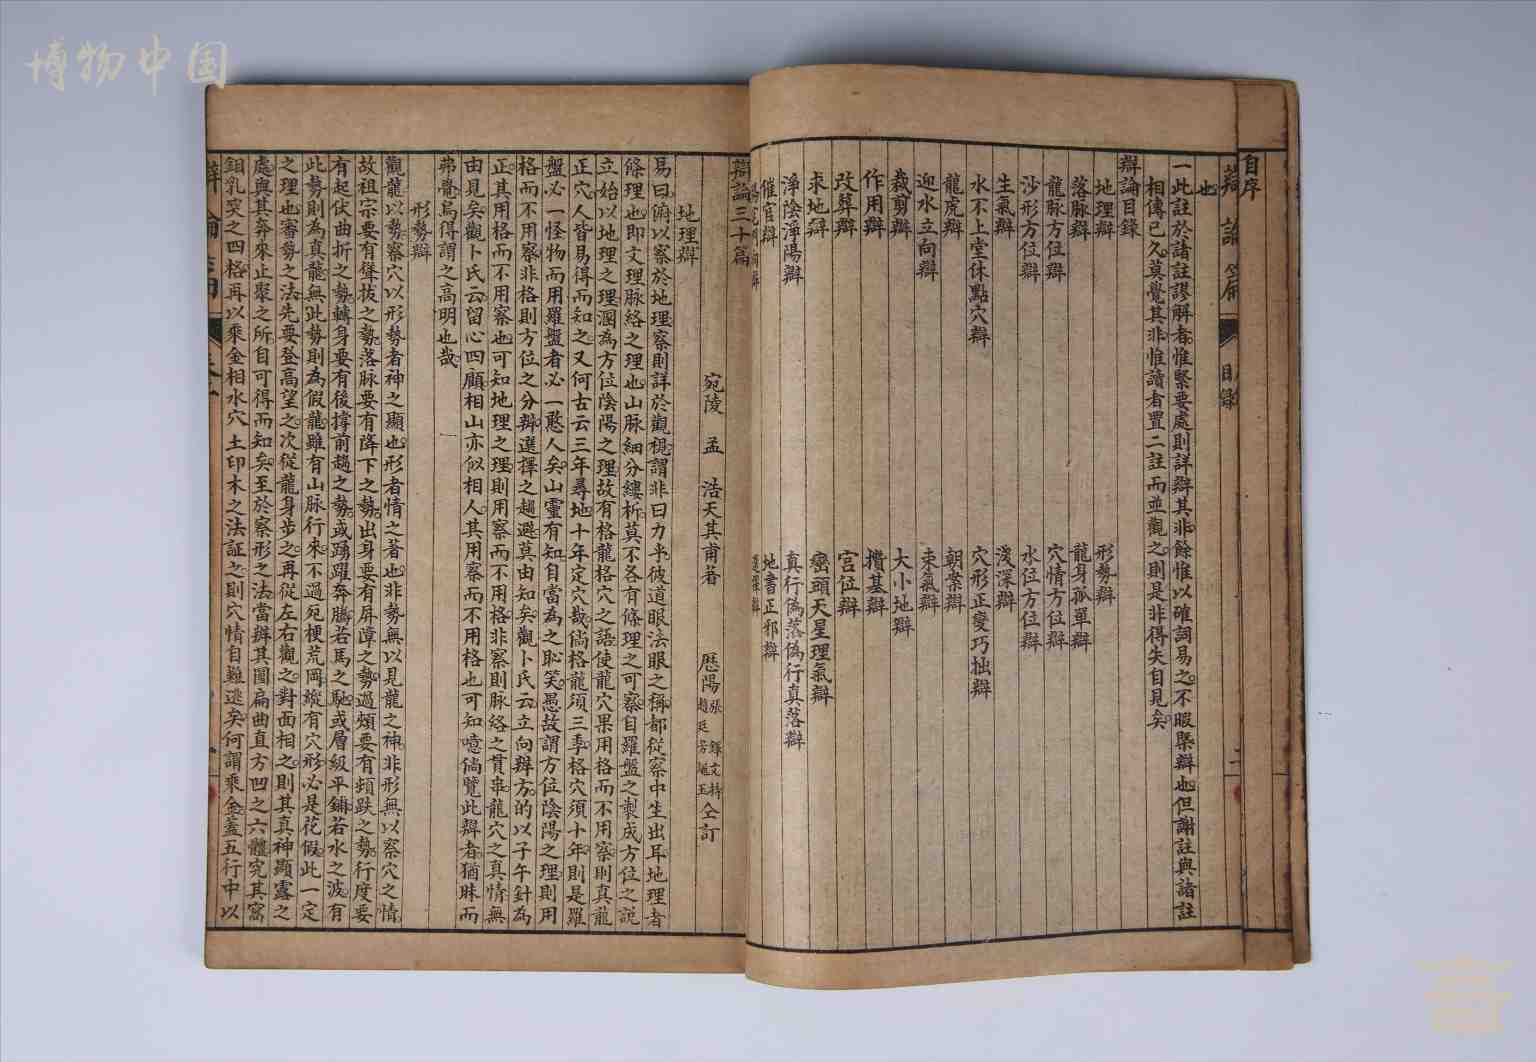 博物中国
自序
辯論篇 目錄
也
一此註於諸註謬解者惟緊要處則詳辯其非餘惟以確詞易之不暇槩辯也但謝註與諸註
相傳已久莫覺其非惟讀者置二註而並觀之則是非得失自見矣
辯論目錄
地理辯 形勢辯
落脉辯 龍身孤單辯
龍脉方位辯 穴情方位辯
沙形方位辯 水位方位辯
生氣辯 淺深辯
水不上堂休點穴辯 穴形正變巧拙辯
龍虎辯 朝案辯
迎水立向辯 束氣辯
裁剪辯 大小地辯
作用辯 攢基辯
改葬辯 宮位辯
求地辯 巒頭天星理氣辯
淨陰淨陽辯 真行偽落偽行真落辯
催官辯 地書正邪辯
辯論三十篇
宛陵 孟 浩天其甫著 歷陽 張鐸文持 趙廷芳 玉 仝訂
地理辯
易曰俯以察於地理察則詳於觀視謂非曰力乎彼道眼法眼之稱都從察中生出耳地理者
條理也即文理脈絡之理也山脈細分縷析莫不各有條理之可察自羅盤之製成方位之說
立始以地理之理溷為方位陰陽之理故有格龍格穴之語使龍穴果用格而不用察則真龍
正穴人皆易得而知之又何古云三年尋地十年定穴哉倘格龍須三季格穴須十年則是羅
盤必一怪物而用羅盤者必一憨人矣山靈有知自當為之恥笑愚故謂方位陰陽之理則用
格而不用察非格則方位之分辨選擇之趨避莫由知矣觀卜氏云立向辨方的以子午針為
正其用格而不用察也可知地理之理則用察而不用格非察則脈絡之貫串龍穴之真情無
由見矣觀卜氏云留心四顧相山亦似相人其用察而不用格也可知噫倘覽此辯者猶昧而
弗覺烏得謂之高明也哉
形勢辯
觀龍以勢察穴以形勢者神之顯也形者情之著也非勢無以見龍之神非形無以察穴之情
故祖宗要有聳拔之勢落脉要有降下之勢出身要有屏障之勢過頰要有頓跌之勢行度要
有起伏曲折之勢轉身要有後撐前趨之勢或踴躍奔騰若馬之馳或層級平鋪若水之波有
此勢則為真龍無此勢則為假龍雖有山脈行來不過死梗荒岡縱有穴形必是花假此一定
之理也審勢之法先要登高望之次從龍身步之再從左右觀之對面相之則其真神顯露之
處與其奔來止聚之所自可得而知矣至於察形之法當辨其圓扁曲直方凹之六體究其窩
鉗乳突之四格再以乘金相水穴土印木之法証之則穴情自難逃矣何謂乘金蓋五行中以